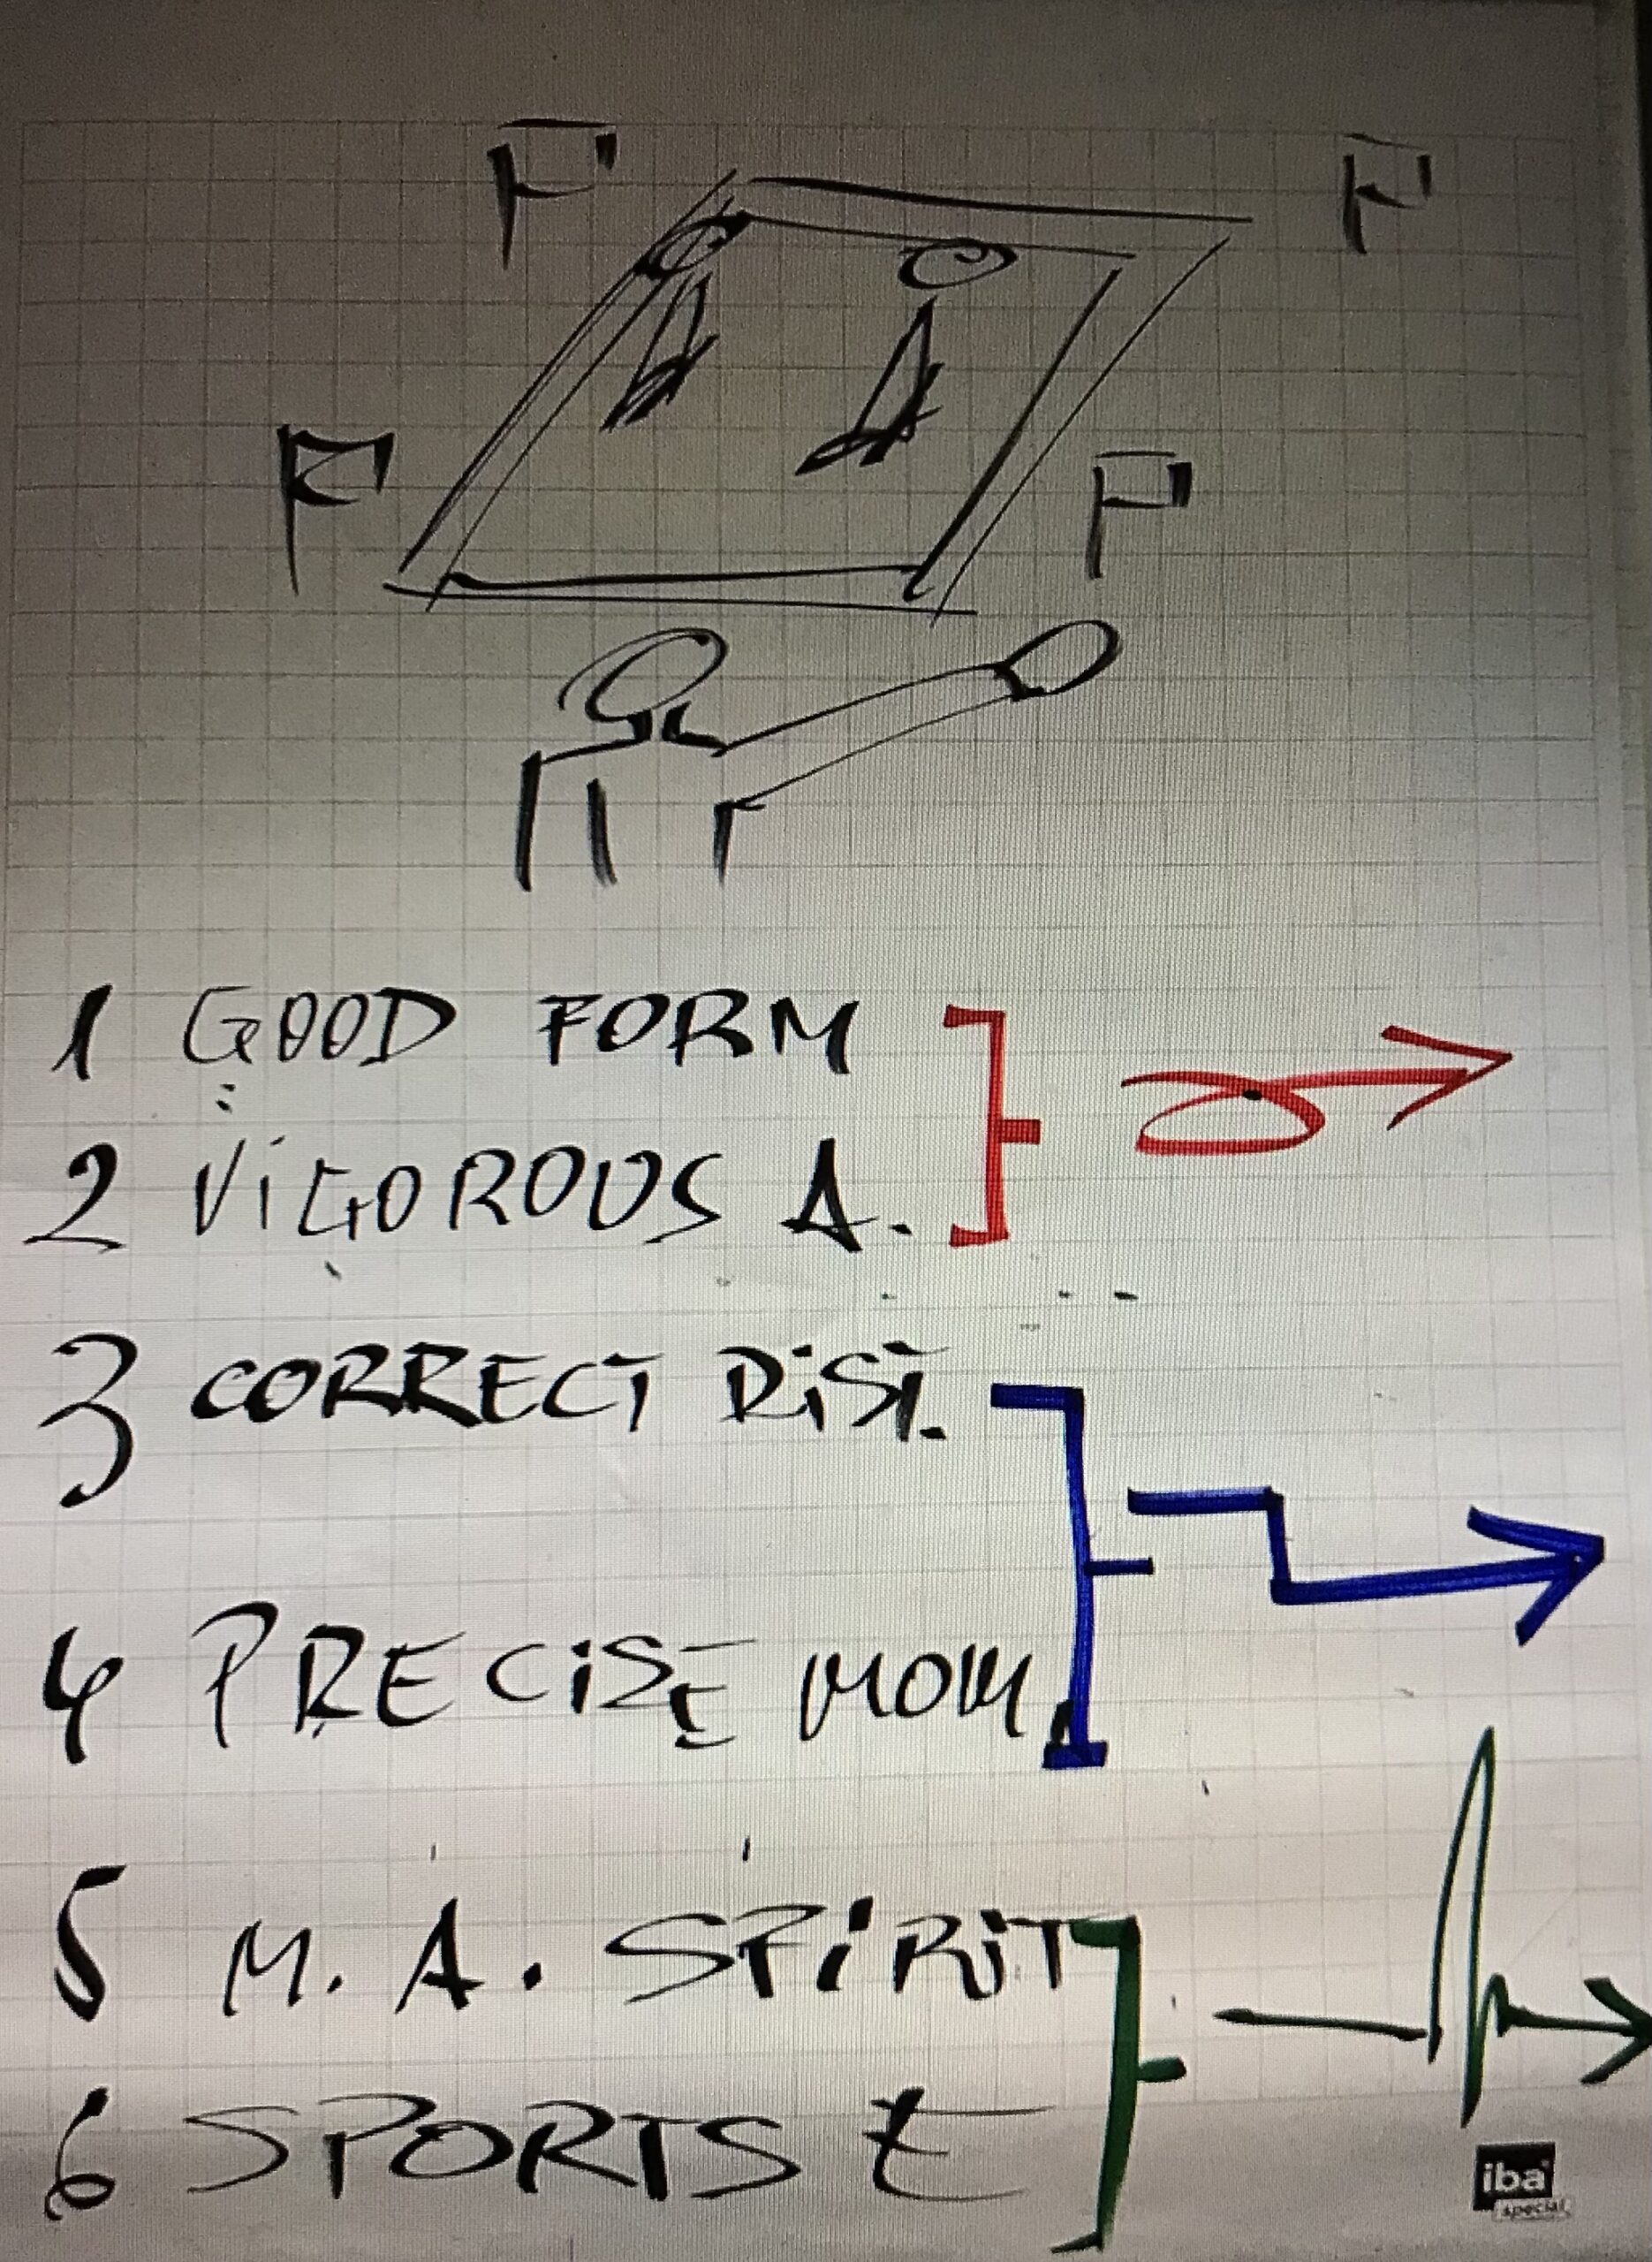 F F
F F
1 GOOD FORM
2 ViGOROUS A.
3 CORRECT DiST.
4 PRECiSE MOM.
5 M. A. SPiRiT
6 SPORTS E
iba
special